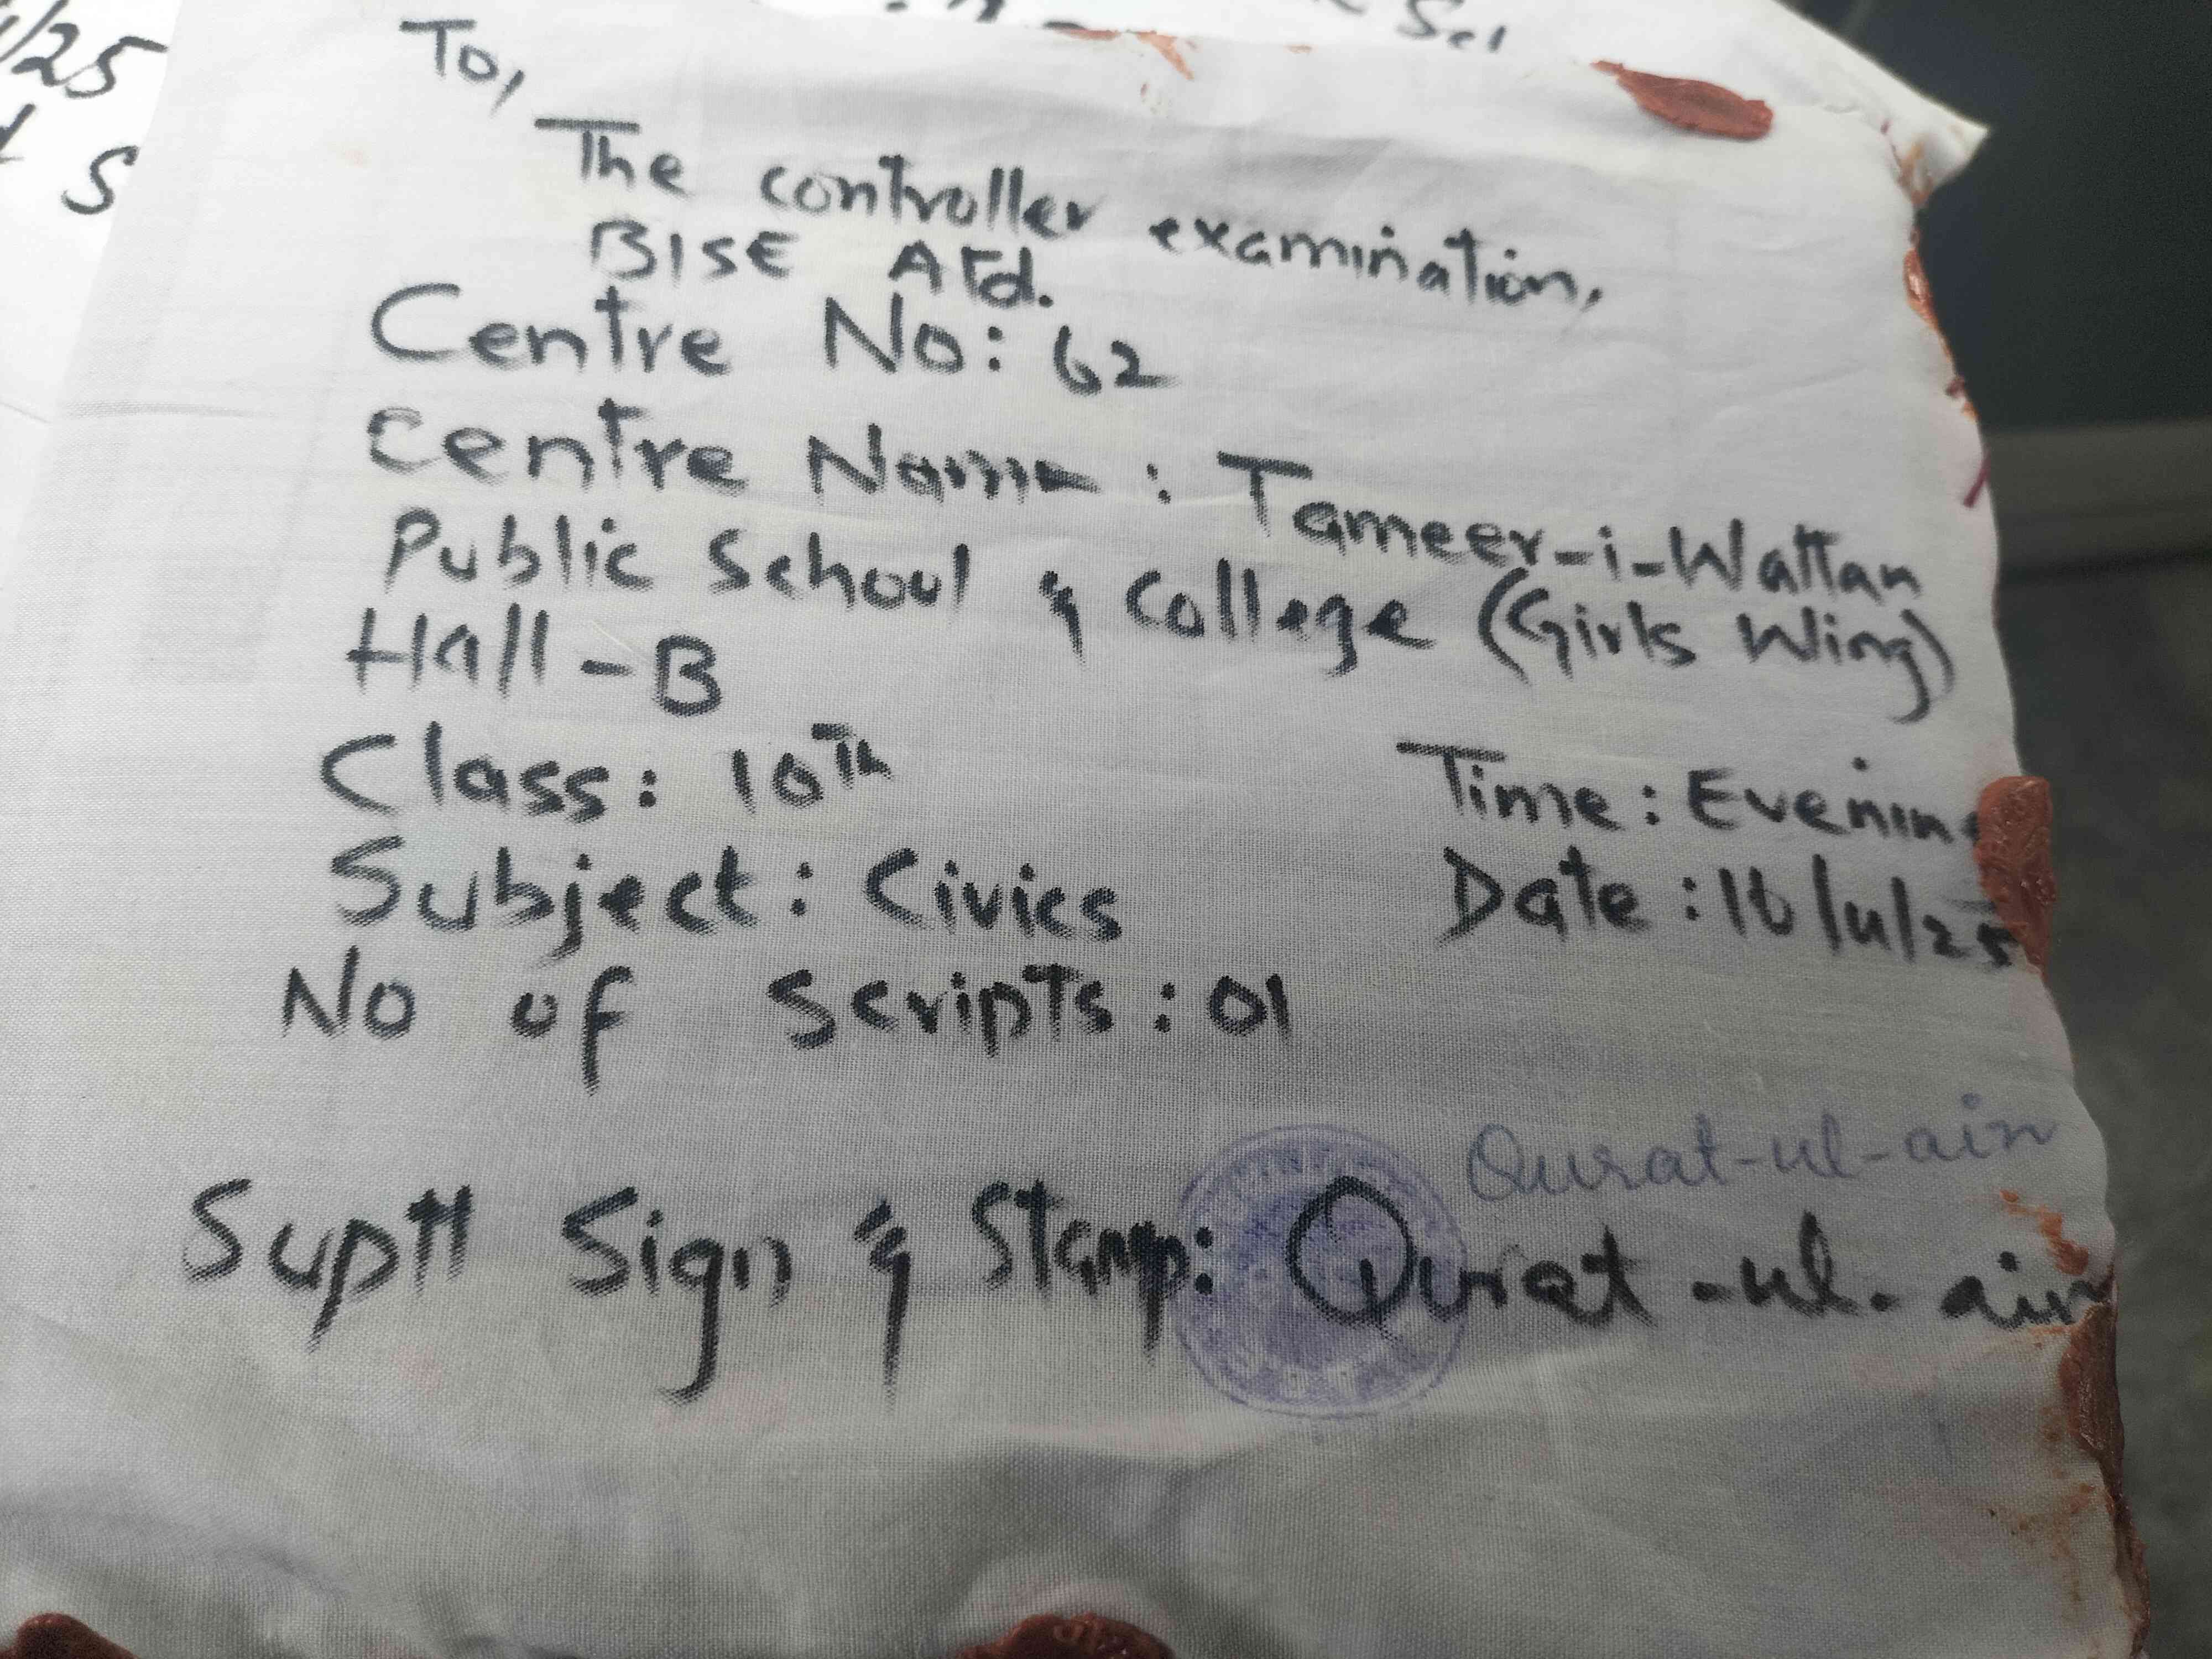 To,
The controller examination,
BISE ATd.
Centre No: 62
Centre Name : Tameer-i-Wattan
Public School & College (Girls Wing)
Hall-B
Class: 10Th
Time: Evening
Subject: Civics
Date: 16/4/25
No of Scripts: 01
Qurat-ul-ain
Suptt Sign & Stamp: Qurat-ul-ain
/25
S